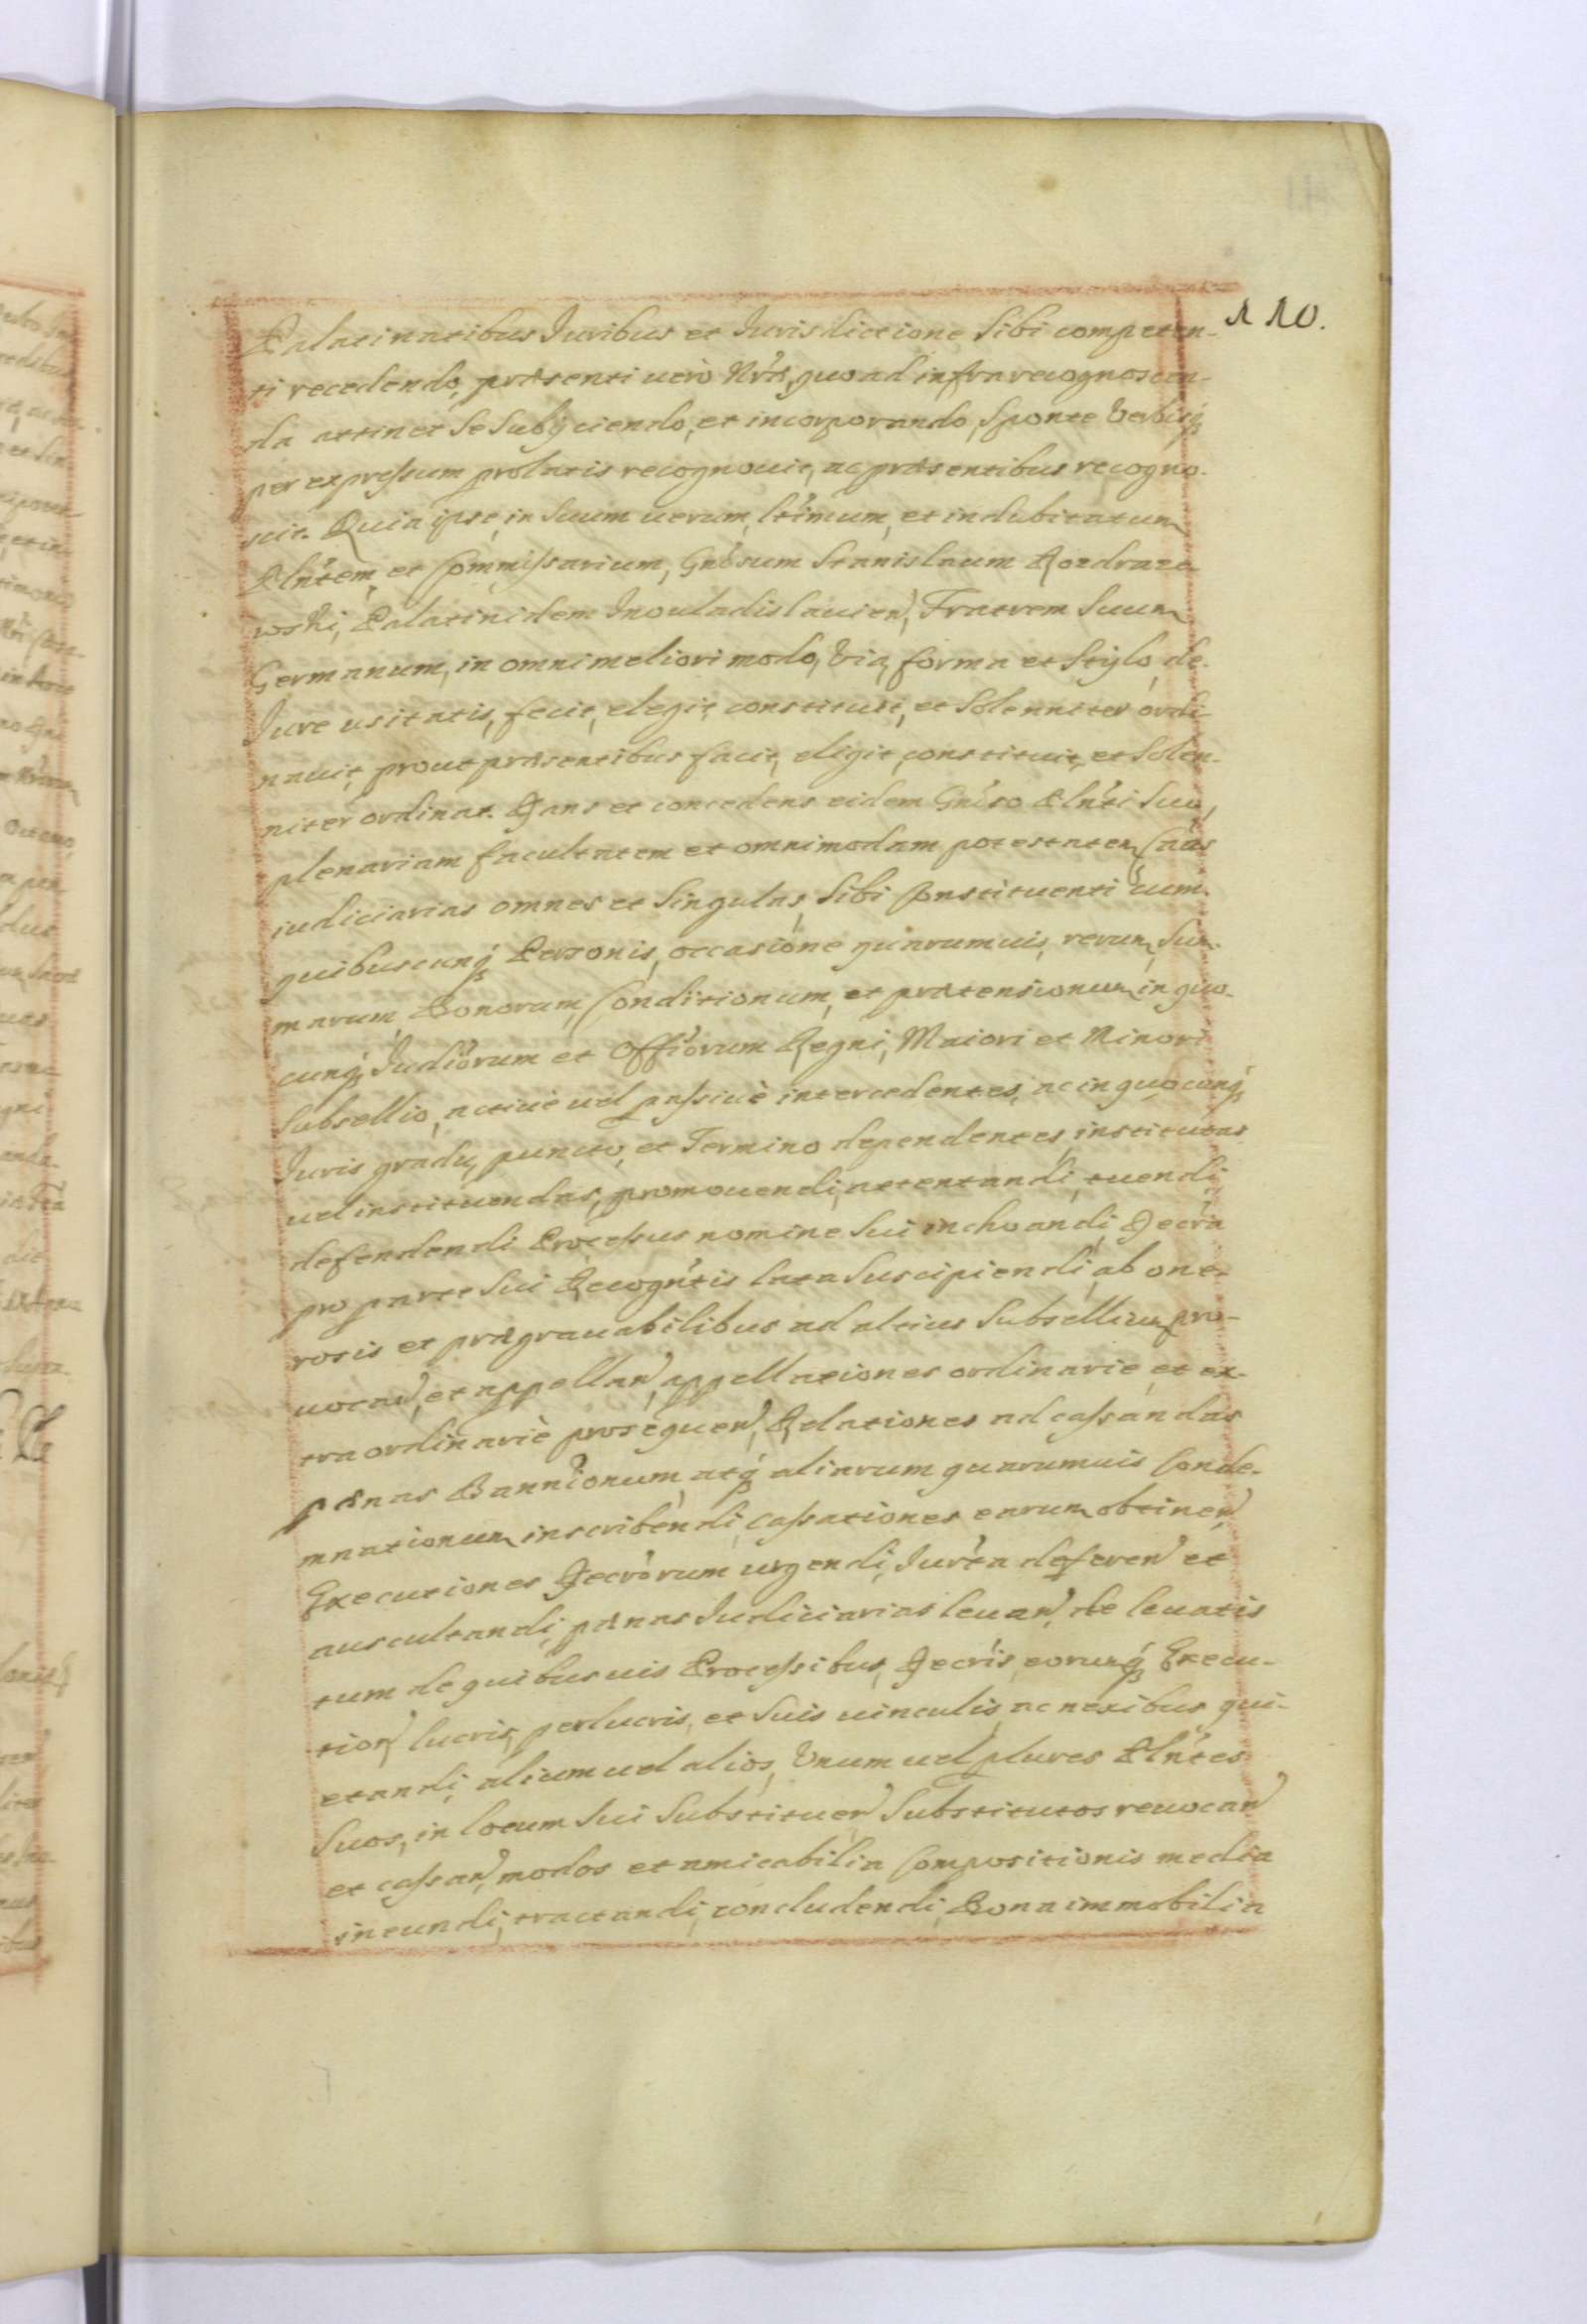 110.
Palatinatibus Iuribus et Iurisdictione sibi competen-
ti recedendo, præsenti uerò Nræ, quoad infra recognoscen-
da attinet se subijciendo, et incorporando, sponte Verbisq́
per expressum prolatis recognouit, ac præsentibus recogno-
scit. Quia ipse, in suum uerum, ltimum, et indubitatum
Plntem, et Commissarium, Gnosum Stanislaum Rozdraze
wski, Palatinidem Inouladislauien, Fratrem Suum
Germanum, in omni meliori modo, Via, forma et Stylo, de
Iure usitatis, fecit, elegit, constituit, et Solenniter ordi
nauit, prout præsentibus facit, eligit, constituit, et Solen-
niter ordinat. Dans et concedens eidem Gnoso Plnti Suo,
plenariam facultatem et omnimodam potestatem Caūs
iudiciarias omnes et Singulas, sibi Constituenti cum
quibuscunq́ Personis, occasione quarumuis, rerum, Sum
marum, Bonorum, Conditionum, et prætensionum in quo-
cunq́ Iudiorum et Offiorum Regni, Maiori et Minori
Subsellio, actiuè uel passiuè intercedentes, ac in quocunq́
Iuris gradu, puncto, et Termino dependentes, institutas
uel instituendas, promouendi, attentandi, tuendi
defendendi Processus nomine Sui inchoandi, Decra
pro parte Sui Recogntis lata Suscipiendi, ab one-
rosis et prægrauabilibus ad altius Subsellium pro-
uocan, et appellan, appellationes ordinariè, et ex-
traordinariè prosequen, Relationes ad cassandas
pænas Bannionum, atq́ aliarum quarumuis Conde-
mnationum inscribendi, cassationes earum obtinen
Executiones Decrorum urgendi, Iurta deferen et
auscultandi, pænas Iudiciarias leuan, de leuatis
tum de quibusuis Processibus, Decris, eorumq́ Execu-
tion lucris, perlucris, et suis uinculis, ac nexibus qui-
etandi, alium uel alios, Vnum uel plures Plntes
Suos, in locum Sui Substituen Substitutos reuocan
et cassan, modos et amicabilia Compositionis media
ineundi, tractandi, concludendi, Bona immobilia